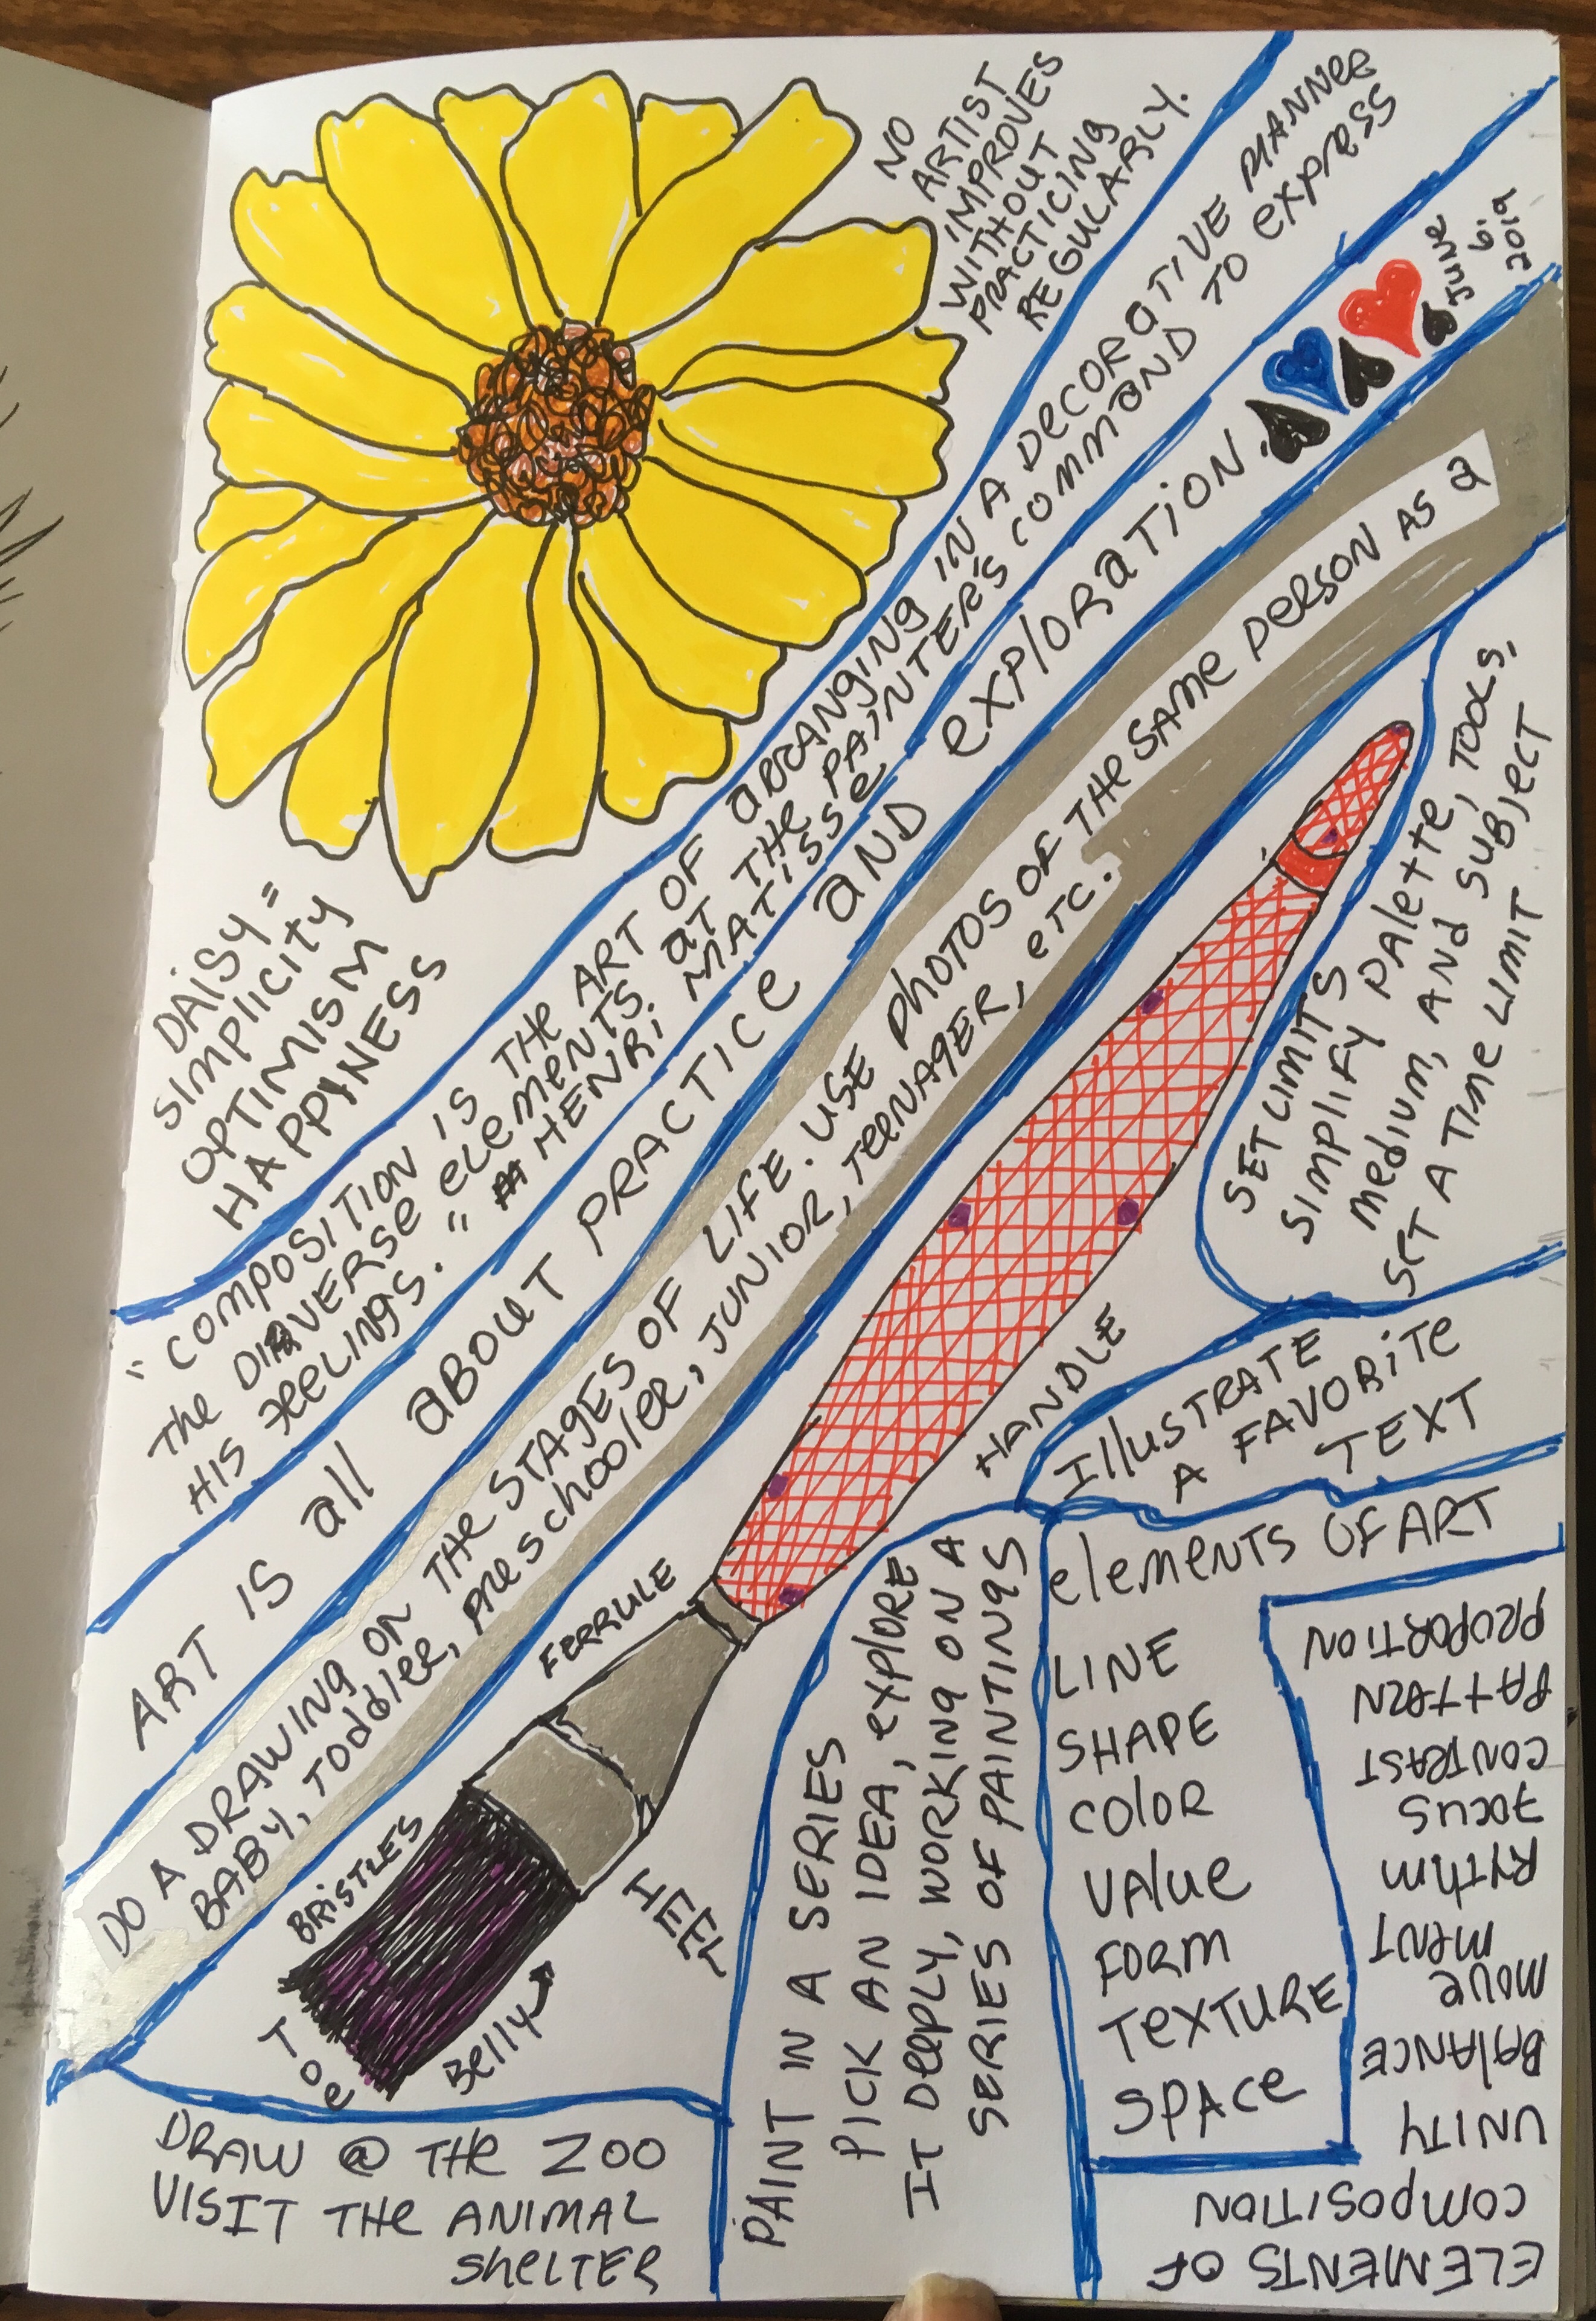 NO
ARTIST
IMPROVES
WITHOUT
PRACTICING
REGULARLY.
DAISY =
SIMPLICITY
OPTIMISM
HAPPINESS
"COMPOSITION IS THE ART OF ARRANGING IN A DECORATIVE MANNER
THE DIVERSE ELEMENTS AT THE PAINTER'S COMMAND TO EXPRESS
HIS FEELINGS." HENRI MATISSE
ART IS all ABOUT PRACTICE AND EXPLORATION.
JUNE
6,
2019
DO A DRAWING ON THE STAGES OF LIFE. USE PHOTOS OF THE SAME PERSON AS A
BABY, TODDLER, PRESCHOOLER, JUNIOR, TEENAGER, ETC.
SET LIMITS
SIMPLIFY PALETTE, TOOLS,
MEDIUM, AND SUBJECT
SET A TIME LIMIT
HANDLE
FERRULE
BRISTLES
HEEL
BELLY
TOE
ILLUSTRATE
A FAVORITE
TEXT
DRAW @ THE ZOO
VISIT THE ANIMAL
SHELTER
PAINT IN A SERIES
PICK AN IDEA, EXPLORE
IT DEEPLY, WORKING ON A
SERIES OF PAINTINGS
ELEMENTS OF ART
LINE
SHAPE
COLOR
VALUE
FORM
TEXTURE
SPACE
ELEMENTS OF
COMPOSITION
UNITY
BALANCE
MOVE
MENT
RYTHM
FOCUS
CONTRAST
PATTERN
PROPORTION